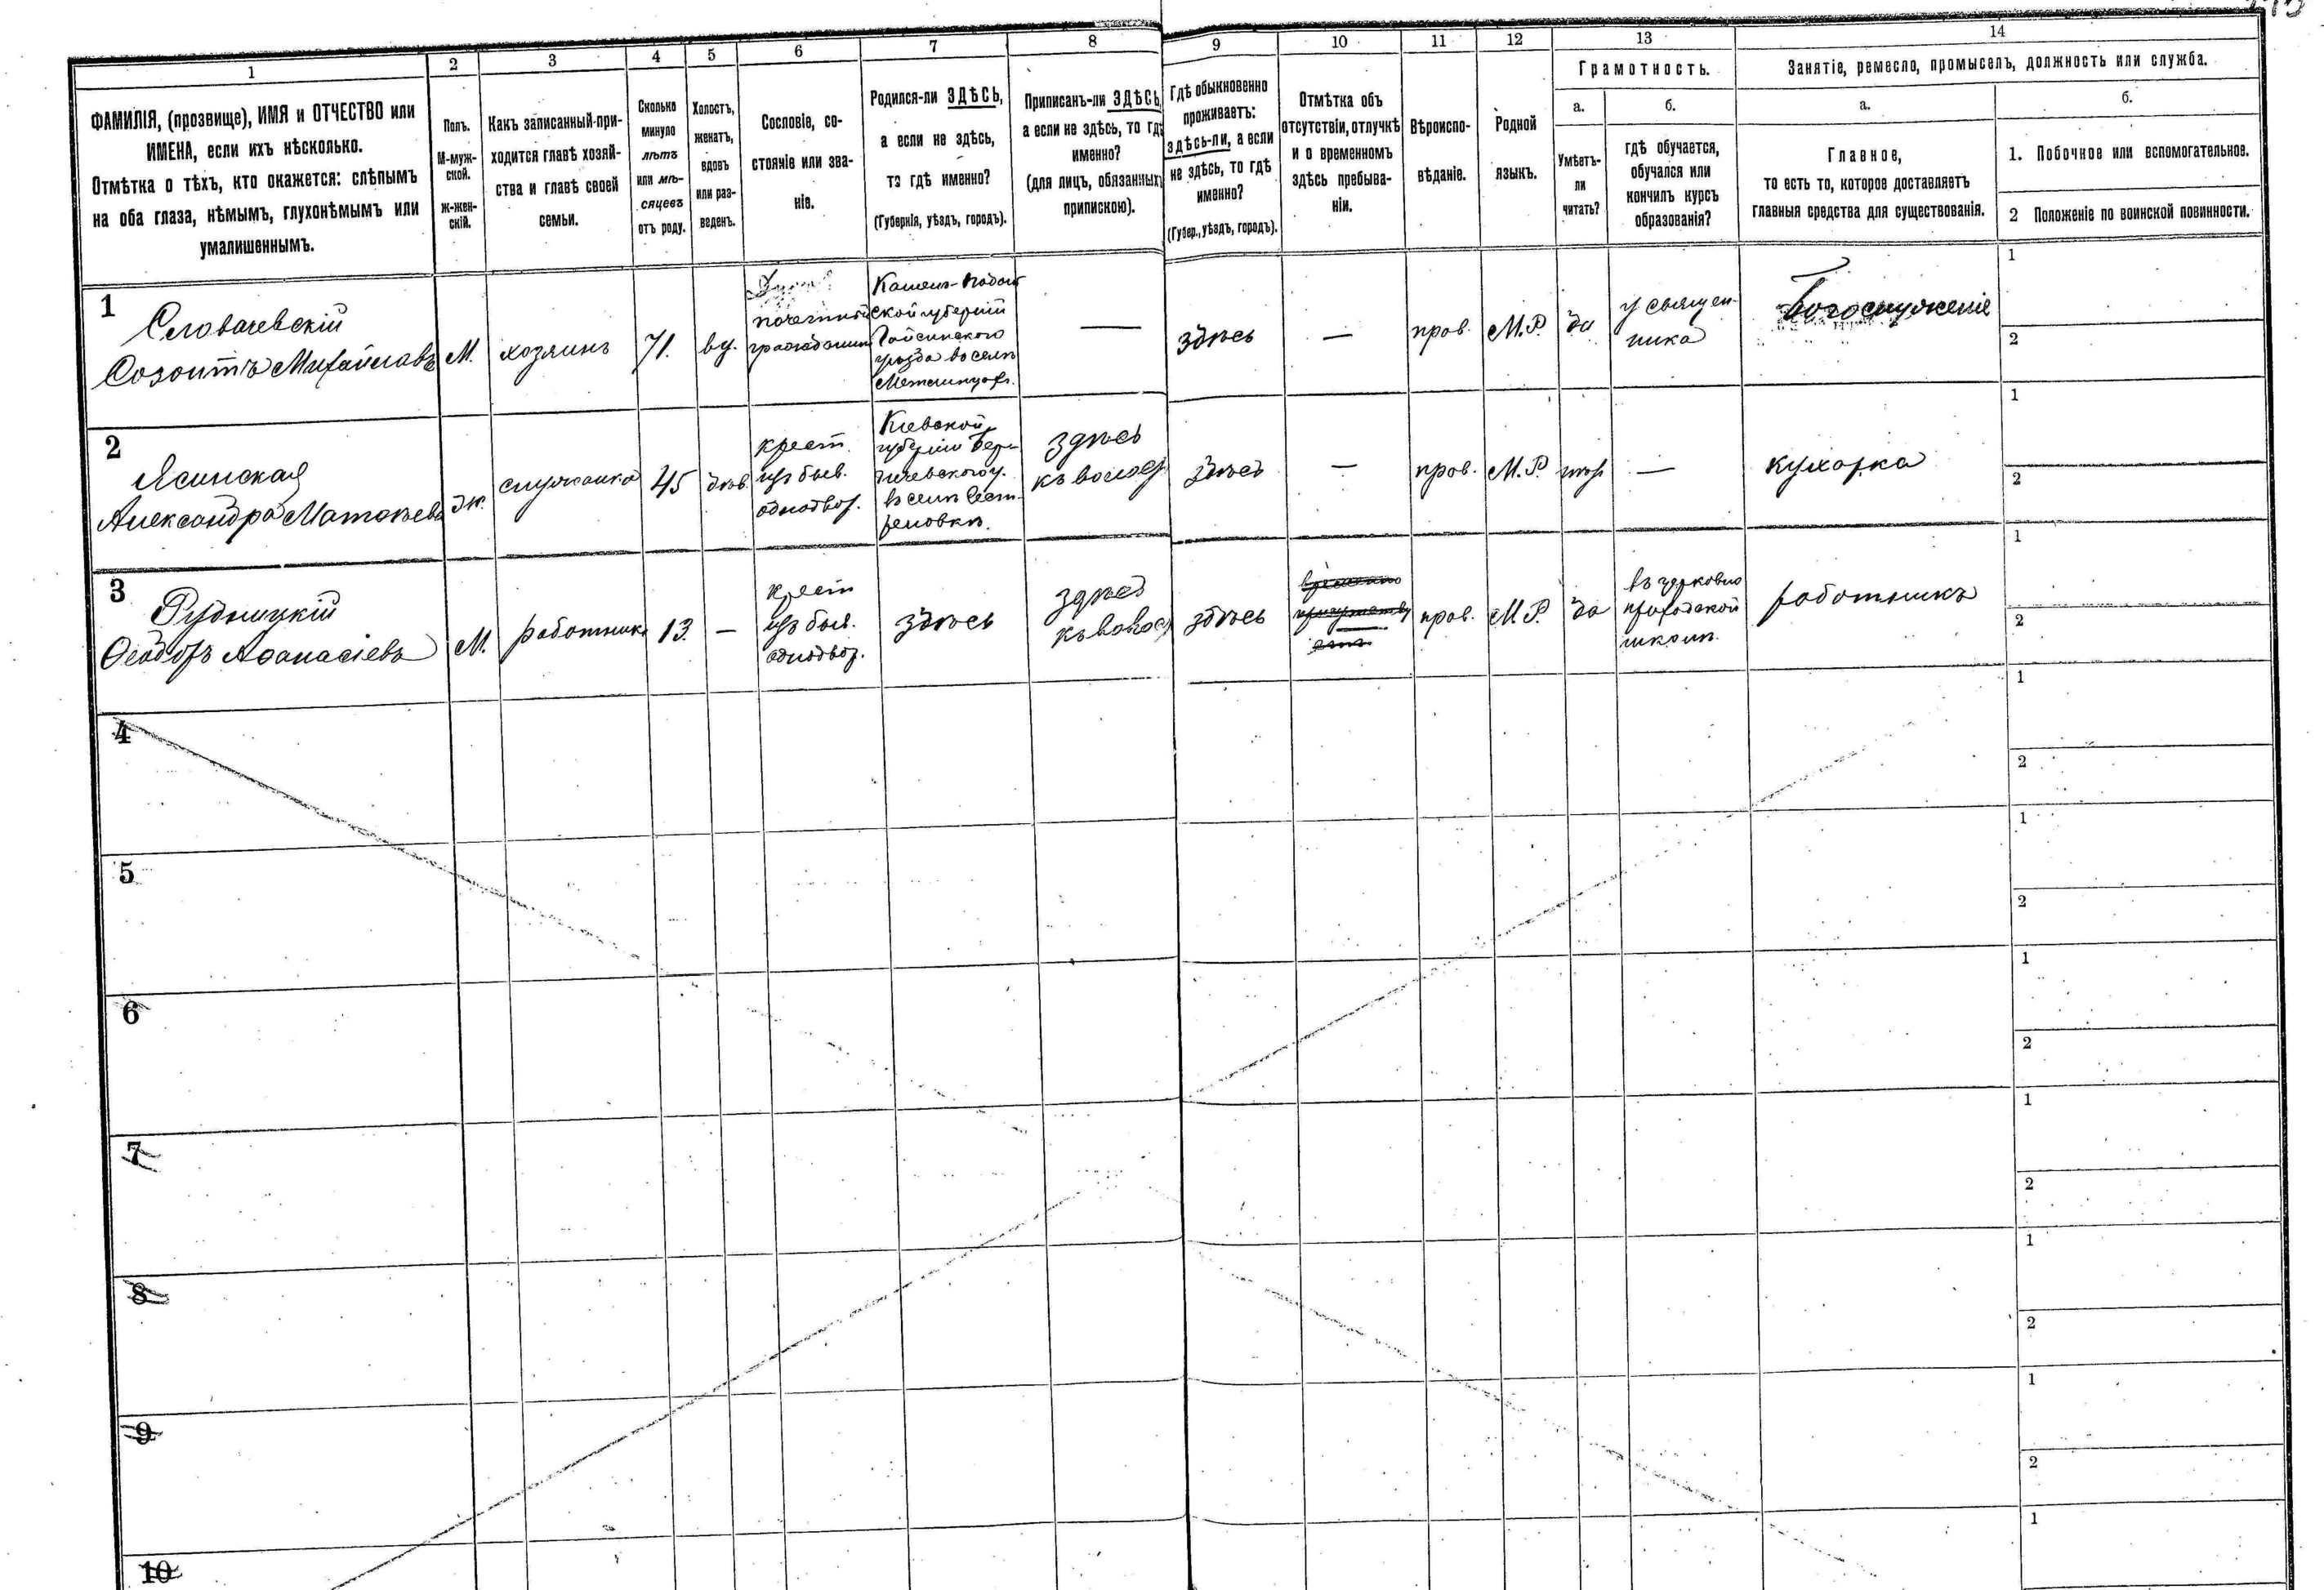 1
2
3
4
5
6
7
8
9
10
11
12
13
14
ФАМИЛІЯ, (прозвище), ИМЯ и ОТЧЕСТВО или
ИМЕНА, если ихъ нѣсколько.
Отмѣтка о тѣхъ, кто окажется: слѣпымъ
на оба глаза, нѣмымъ, глухонѣмымъ или
умалишеннымъ.
Полъ.
М-муж-
ской.
Ж-жен-
скій.
Какъ записанный при-
ходится главѣ хозяй-
ства и главѣ своей
семьи.
Сколько
минуло
лѣтъ
или мѣ-
сяцевъ
отъ роду.
Холостъ,
женатъ,
вдовъ
или раз-
веденъ.
Сословіе, со-
стояніе или зва-
ніе.
Родился-ли ЗДѢСЬ,
а если не здѣсь,
то гдѣ именно?
(Губернія, уѣздъ, городъ).
Приписанъ-ли ЗДѢСЬ,
а если не здѣсь, то гдѣ
именно?
(для лицъ, обязанныхъ
припискою).
Гдѣ обыкновенно
проживаетъ:
здѣсь-ли, а если
не здѣсь, то гдѣ
именно?
(Губер., уѣздъ, городъ).
Отмѣтка объ
отсутствіи, отлучкѣ
и о временномъ
здѣсь пребыва-
ніи.
Вѣроиспо-
вѣданіе.
Родной
языкъ.
Грамотность.
а.
Умѣетъ-
ли
читать?
б.
гдѣ обучается,
обучался или
кончилъ курсъ
образованія?
Занятіе, ремесло, промыселъ, должность или служба.
а.
Главное,
то есть то, которое доставляетъ
главныя средства для существованія.
б.
1. Побочное или вспомогательное.
2 Положеніе по воинской повинности.
1
Словачевскій
Созонтъ Михайловъ
М.
хозяинъ
71.
вд.
почетный
гражданинъ
Каменъ-Подоль
ской губерніи
Гайсинского
уѣзда въ селѣ
—
здѣсь
—
прав.
М.Р.
да
у священ-
ника
Богослуженіе
1
2
2
Ясинская
Александра Матвѣева
Ж.
служанка
45
дѣв.
крест.
изъ быв.
однодвор.
Кіевской
губерніи Бер-
дичевского у.
въ селѣ
здѣсь
къ волост
здѣсь
—
прав.
М.Р.
нѣт
—
кухарка
1
2
3
Рудницкій
Ѳеодоръ Аѳанасіевъ
М.
работникъ
13.
—
крест
изъ быв.
однодвор.
здѣсь
здѣсь
къ волос
здѣсь
временно
прав.
М.Р.
да
въ церковно
приходской
школѣ.
работникъ
1
2
4
1
2
5
1
2
6
1
2
7
1
2
8
1
2
9
1
2
10
1